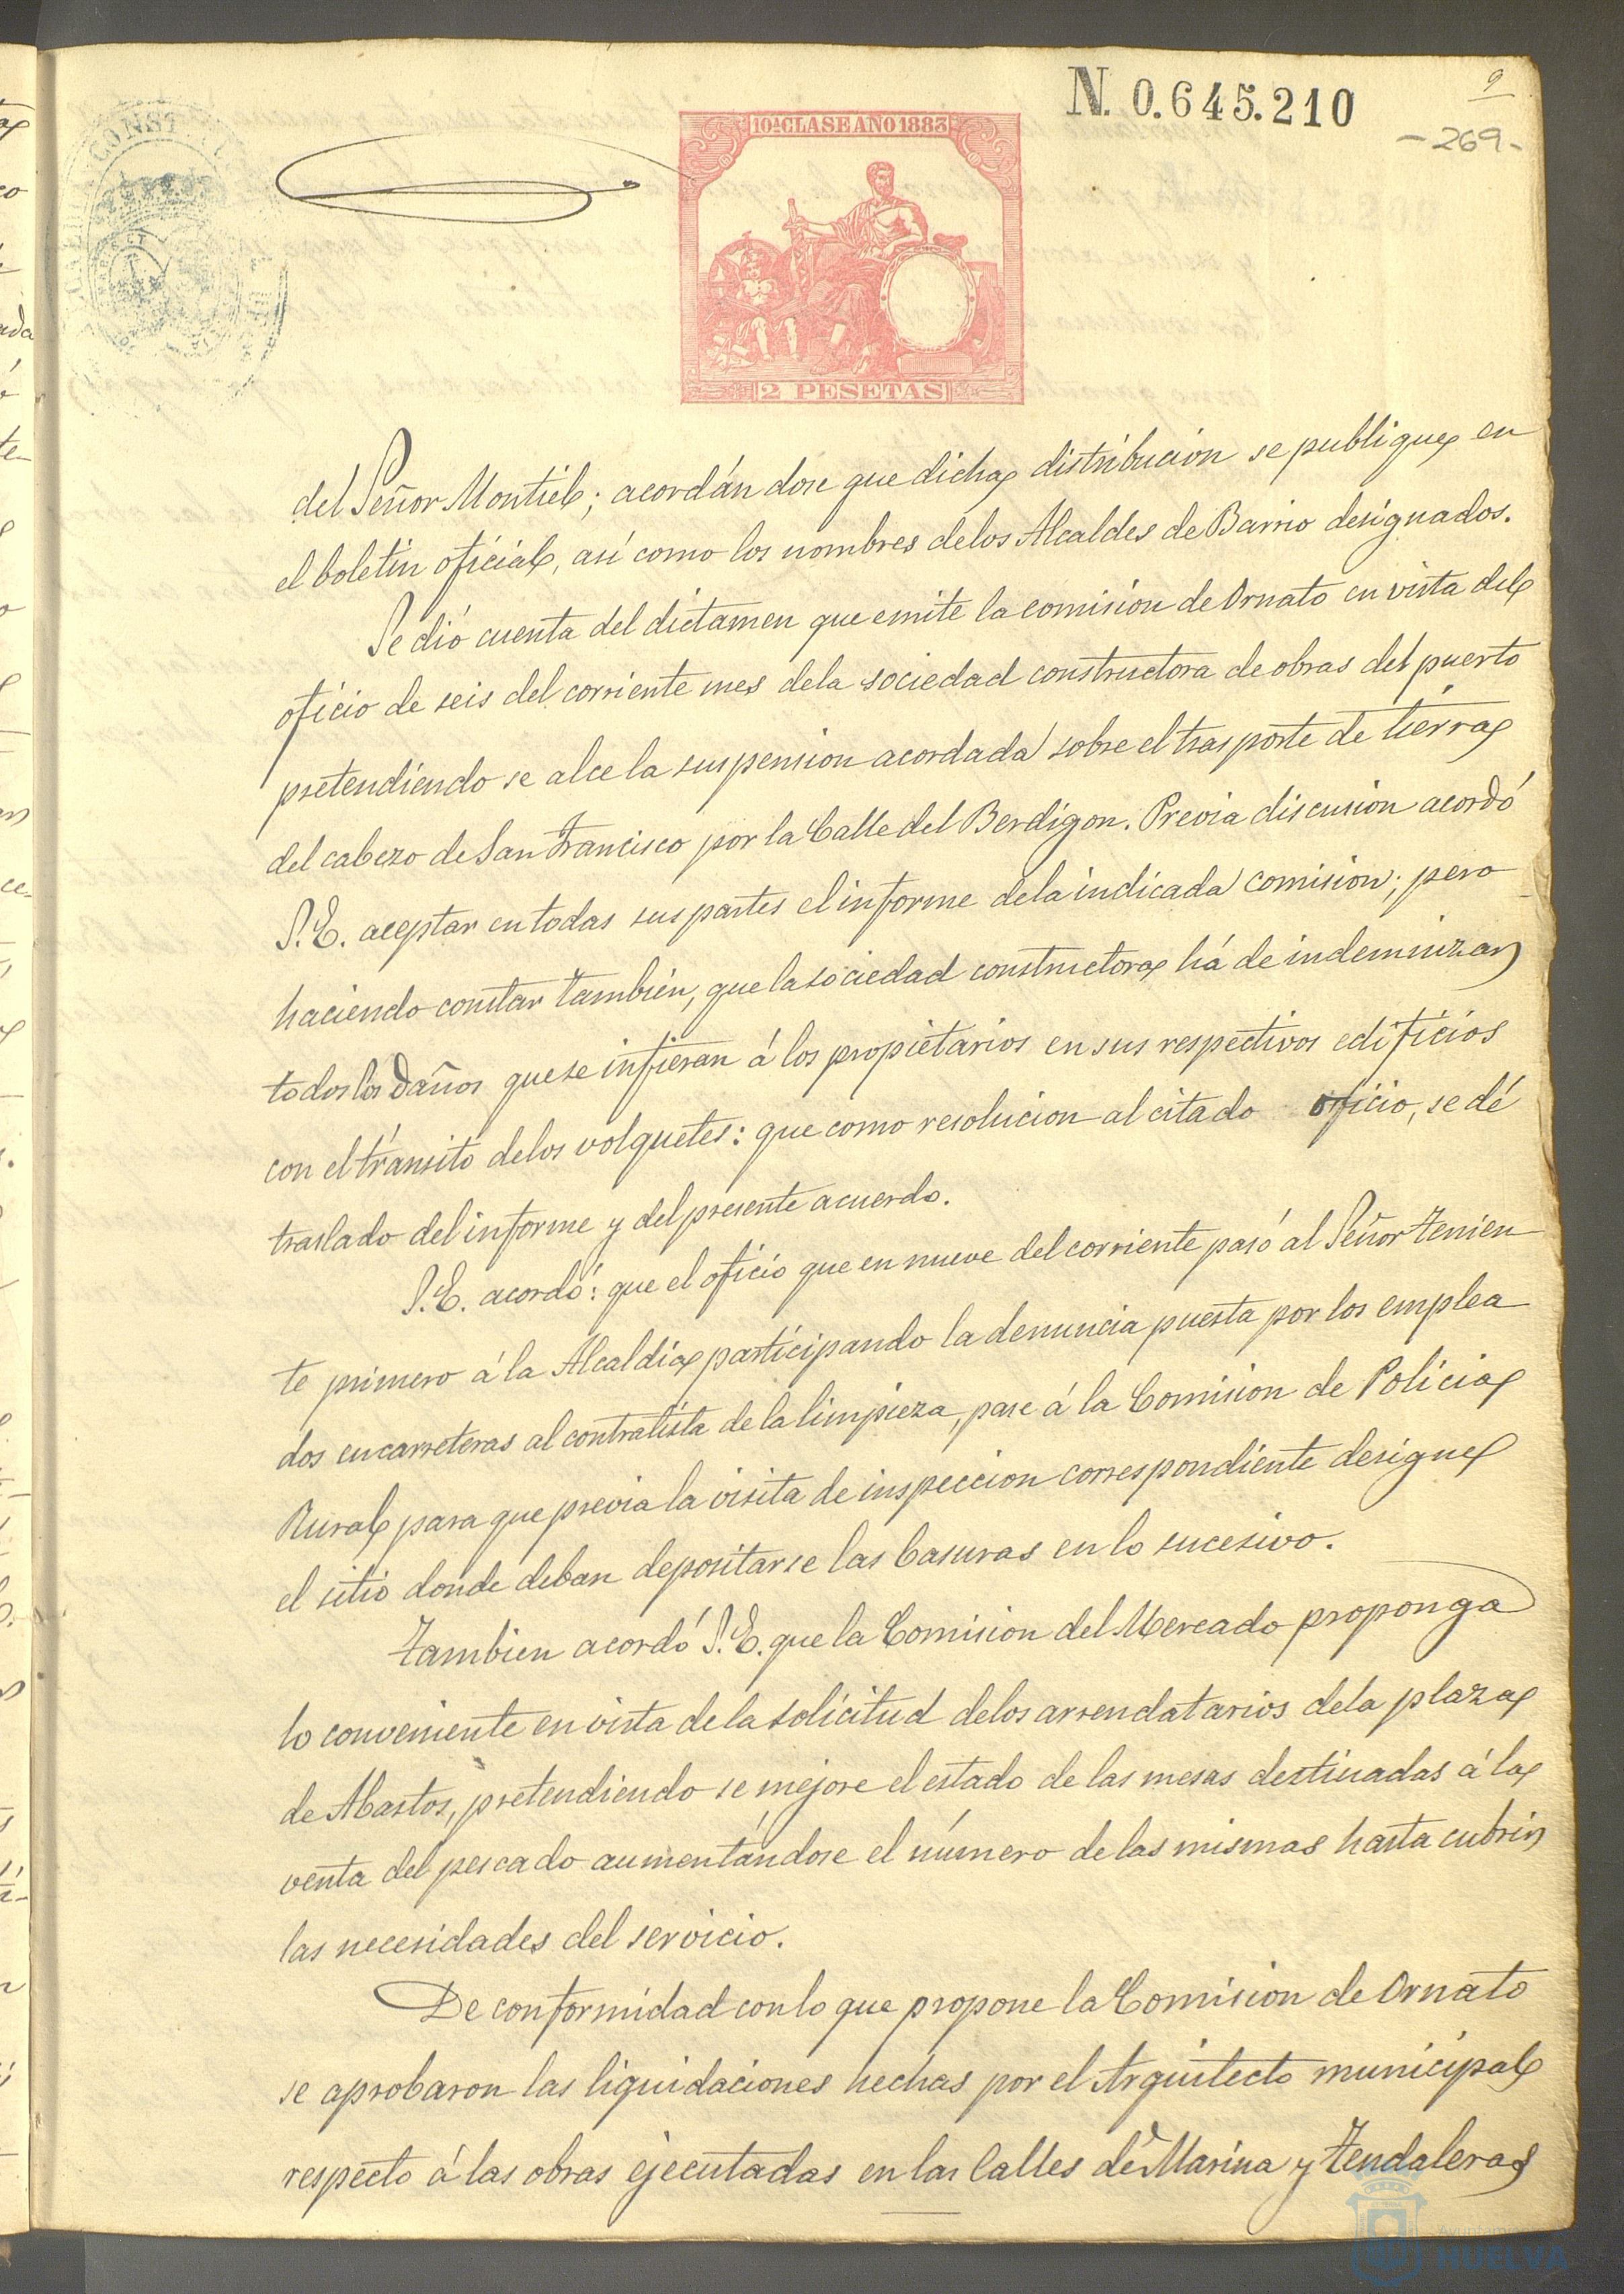 N. 0.645.210
9
-269-
10ª CLASE AÑO 1883
2 PESETAS
del Señor Montiel; acordándose que dicha distribución se publique en
el boletin oficial, así como los nombres delos Alcaldes de Barrio designados.
Se dió cuenta del dictamen que emite la comision de Ornato en vista del
oficio de seis del corriente mes dela sociedad constructora de obras del puerto
pretendiendo se alce la suspension acordada sobre el trasporte de tierra
del cabezo de San Francisco por la Calle del Berdigon. Previa discusion acordó
S.E. aceptar en todas sus partes el informe dela indicada comision; pero
haciendo constar tambien, que la sociedad constructora há de indemnizar
todos los daños que se infieran á los propietarios en sus respectivos edificios
con el tránsito delos volquetes: que como resolucion al citado oficio, se dé
traslado del informe y del presente acuerdo.
S.E. acordó: que el oficio que en nueve del corriente pasó al Señor Tenien
te primero á la Alcaldia participando la denuncia puesta por los emplea
dos en carreteras al contratista de la limpieza, pase á la Comision de Policia
Rural para que previa la visita de inspeccion correspondiente designe
el sitio donde deban depositarse las basuras en lo sucesivo.
Tambien acordó S.E. que la Comision del Mercado proponga
lo conveniente en vista de la solicitud delos arrendatarios dela plaza
de Abastos, pretendiendo se mejore el estado de las mesas destinadas á la
venta del pescado aumentándose el número de las mismas hasta cubrir
las necesidades del servicio.
De conformidad con lo que propone la Comision de Ornato
se aprobaron las liquidaciones hechas por el Arquitecto municipal
respecto á las obras ejecutadas en las Calles de Marina y Tendaleras
HUELVA